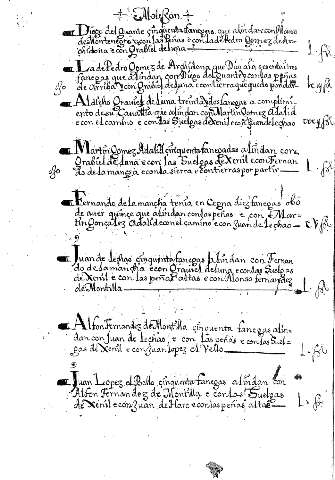 Diego del guante cinquenta fanegas que alindan con
de Montenegro y con las Peñas e con la de Pedro Gomez de Ar-
chidona e con Grabiel de luna L fs
La de Pedro Gomez de Archidona que Dio
fanegas que alindan con Diego del Guante y con las peñas
de Arriba y con Grabiel de luna e con tierra que quedo por dar
A Grabiel de luna treinta fanegas a complimi-
ento de su Cavalleria que alindan con Martin Gomez Adalid
e con el camino e con las Suelgas de Xenil e
Martin Gomez Adalid cinquenta fanegas alindan con
Grabiel de luna e con las Suelgas de Xenil e con Fernan-
do de la mancha e con la sierra e con tierras por partir L fs
Fernando de la mancha tenia en Cezna diez fanegas obo
de aver quinze que alindan con los peñas e con Mar-
tin Gonçalez Adalid e con el camino e con Juan de Lechao
Juan de lechao cinquenta fanegas alindan con Fernan-
do de la mancha e con Graviel de luna e con las Suelgas
de Xenil e con las peñas altas e con Alonso fernandez
de Montilla L fs
Alfon Fernandez de Montilla cinquenta fanegas alin-
dan con Juan de Lechao e con las peñas e con las Suel-
gas de Xenil e con Juan lopez el Vello L fs
Juan Lopez el Bello cinquenta fanegas alindan con
Alfon Fernandez de Montilla e con las Suelgas
de Xenil e con Juan de Haro e con las peñas altas L fs